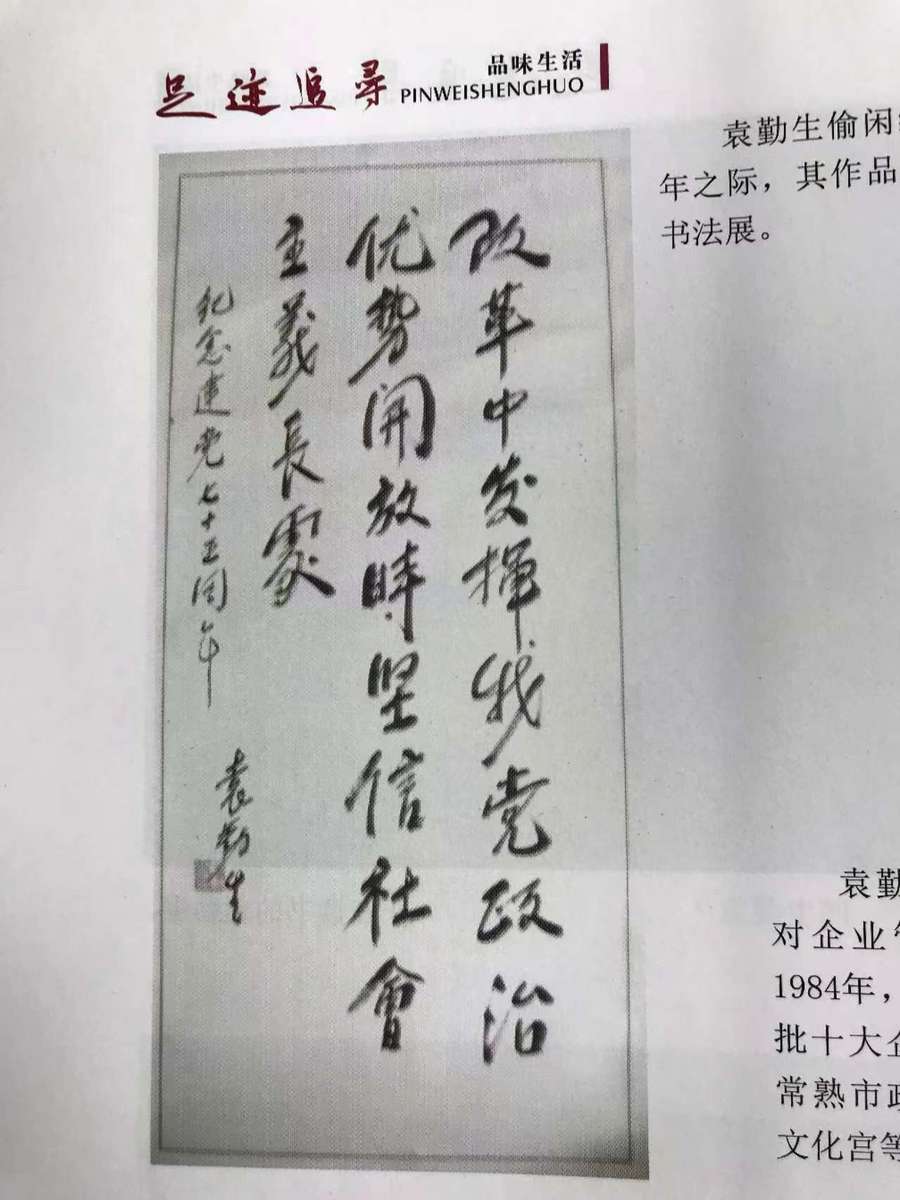 足迹追寻
品味生活
PINWEISHENGHUO
袁勤生偷闲
年之际，其作品
书法展。
改革中发揮我党政治
优势開放時坚信社會
主義長處
纪念建党七十五周年
袁勤生
袁勤
对企业
1984年，
批十大企
常熟市政
文化宫等